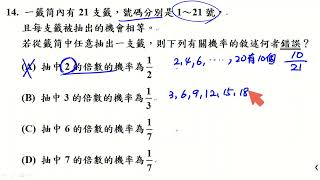 14. 一籤筒內有 21 支籤，號碼分別是 1～21 號，
且每支籤被抽出的機會相等。
若從籤筒中任意抽出一支籤，則下列有關機率的敘述何者錯誤？
(A) 抽中 2 的倍數的機率為 1/2
2,4,6,‧‧‧‧,20有10個 10/21
(B) 抽中 3 的倍數的機率為 1/3
3,6,9,12,15,18
(C) 抽中 6 的倍數的機率為 1/7
(D) 抽中 7 的倍數的機率為 1/7